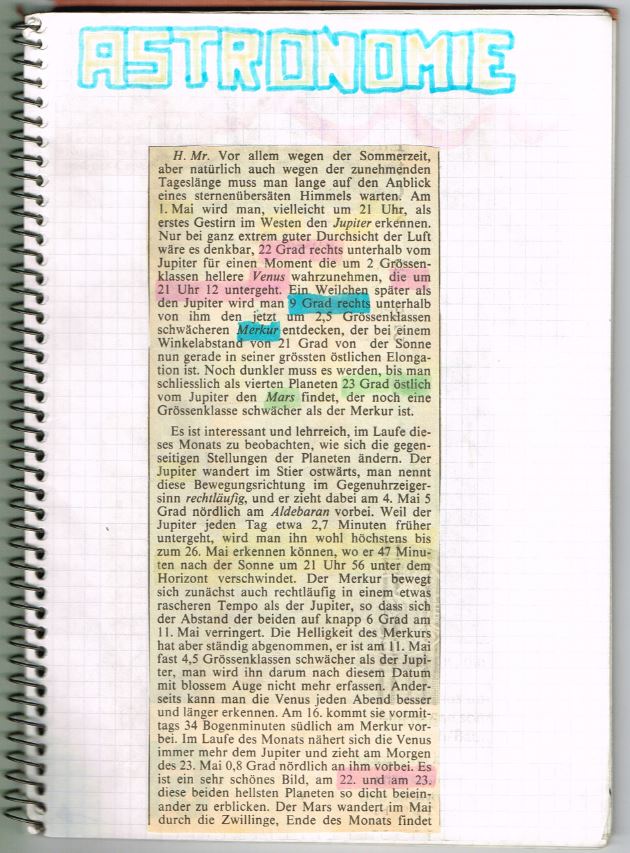 ASTRONOMIE
H. Mr. Vor allem wegen der Sommerzeit,
aber natürlich auch wegen der zunehmenden
Tageslänge muss man lange auf den Anblick
eines sternenübersäten Himmels warten. Am
1. Mai wird man, vielleicht um 21 Uhr, als
erstes Gestirn im Westen den Jupiter erkennen.
Nur bei ganz extrem guter Durchsicht der Luft
wäre es denkbar, 22 Grad rechts unterhalb vom
Jupiter für einen Moment die um 2 Grössen-
klassen hellere Venus wahrzunehmen, die um
21 Uhr 12 untergeht. Ein Weilchen später als
den Jupiter wird man 9 Grad rechts unterhalb
von ihm den jetzt um 2,5 Grössenklassen
schwächeren Merkur entdecken, der bei einem
Winkelabstand von 21 Grad von der Sonne
nun gerade in seiner grössten östlichen Elonga-
tion ist. Noch dunkler muss es werden, bis man
schliesslich als vierten Planeten 23 Grad östlich
vom Jupiter den Mars findet, der noch eine
Grössenklasse schwächer als der Merkur ist.
Es ist interessant und lehrreich, im Laufe die-
ses Monats zu beobachten, wie sich die gegen-
seitigen Stellungen der Planeten ändern. Der
Jupiter wandert im Stier ostwärts, man nennt
diese Bewegungsrichtung im Gegenuhrzeiger-
sinn rechtläufig, und er zieht dabei am 4. Mai 5
Grad nördlich am Aldebaran vorbei. Weil der
Jupiter jeden Tag etwa 2,7 Minuten früher
untergeht, wird man ihn wohl höchstens bis
zum 26. Mai erkennen können, wo er 47 Minu-
ten nach der Sonne um 21 Uhr 56 unter dem
Horizont verschwindet. Der Merkur bewegt
sich zunächst auch rechtläufig in einem etwas
rascheren Tempo als der Jupiter, so dass sich
der Abstand der beiden auf knapp 6 Grad am
11. Mai verringert. Die Helligkeit des Merkurs
hat aber ständig abgenommen, er ist am 11. Mai
fast 4,5 Grössenklassen schwächer als der Jupi-
ter, man wird ihn darum nach diesem Datum
mit blossem Auge nicht mehr erfassen. Ander-
seits kann man die Venus jeden Abend besser
und länger erkennen. Am 16. kommt sie vormit-
tags 34 Bogenminuten südlich am Merkur vor-
bei. Im Laufe des Monats nähert sich die Venus
immer mehr dem Jupiter und zieht am Morgen
des 23. Mai 0,8 Grad nördlich an ihm vorbei. Es
ist ein sehr schönes Bild, am 22. und am 23.
diese beiden hellsten Planeten so dicht beiein-
ander zu erblicken. Der Mars wandert im Mai
durch die Zwillinge, Ende des Monats findet